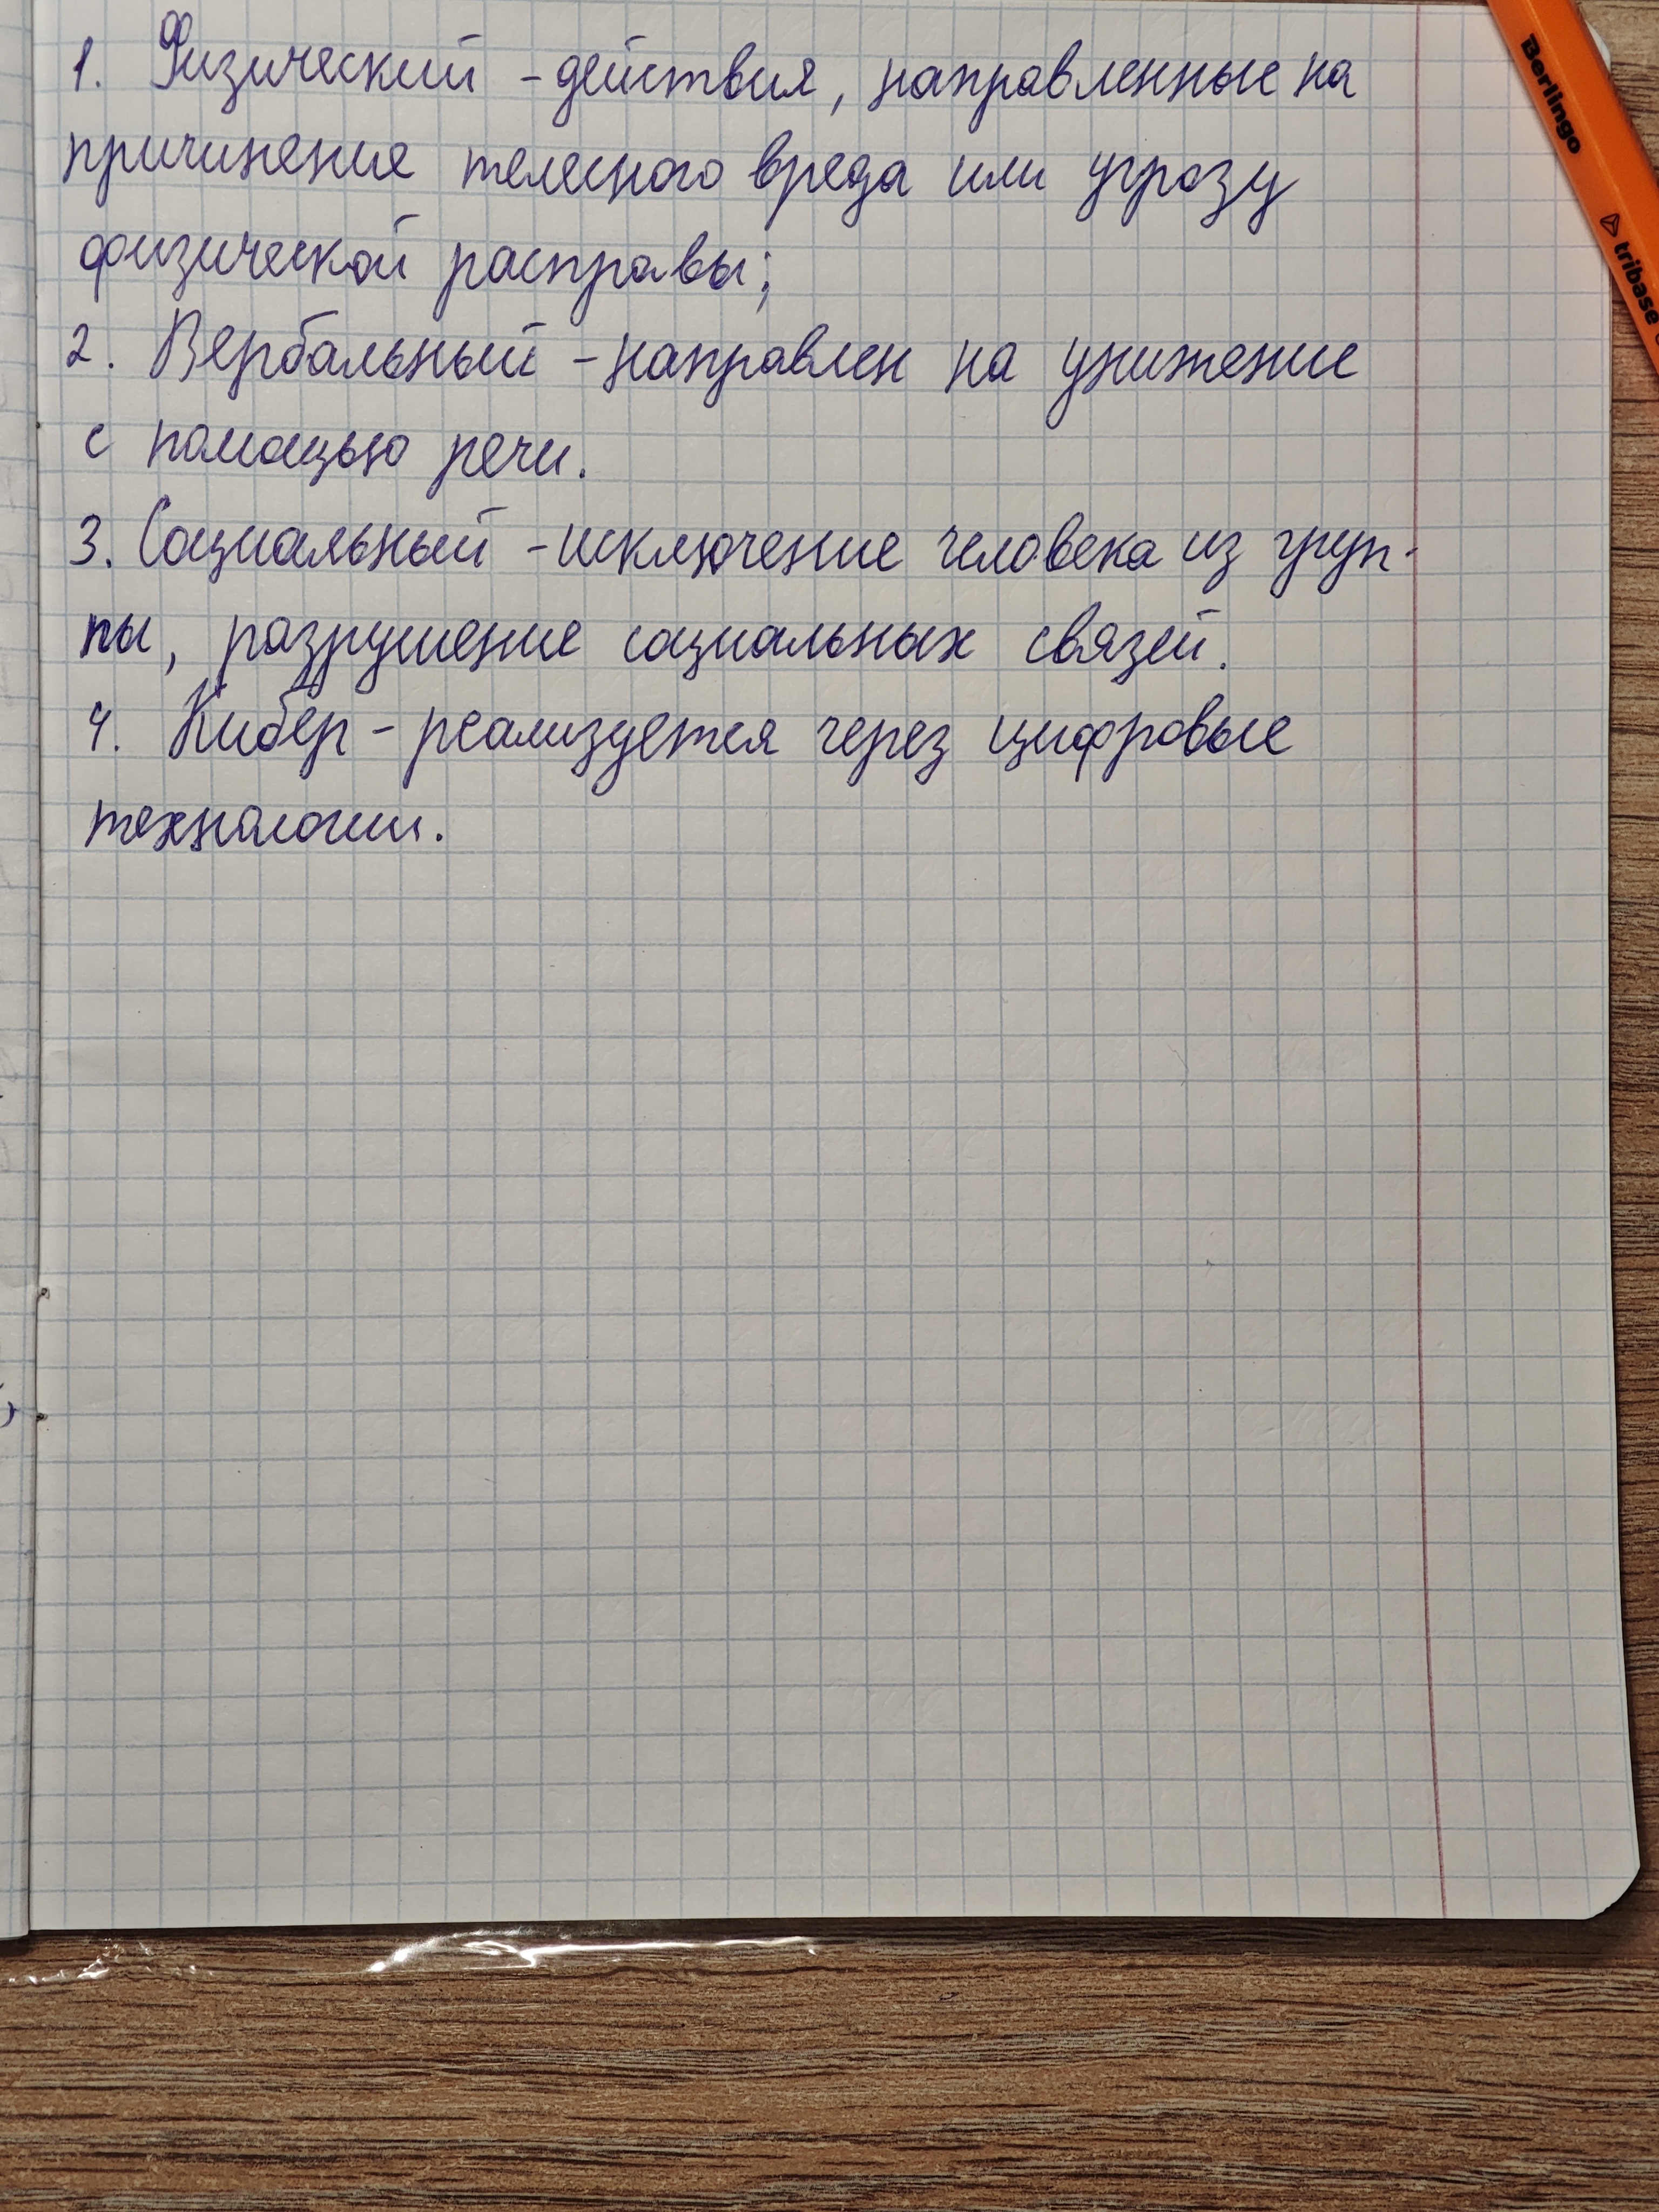 1. Физический - действия, направленные на
причинение телесного вреда или угрозу
физической расправы;
2. Вербальный - направлен на унижение
с помощью речи.
3. Социальный - исключение человека из груп-
пы, разрушение социальных связей.
4. Кибер - реализуется через цифровые
технологии.
Berlingo
tribase